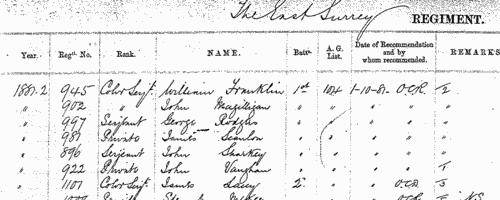 The East Surrey REGIMENT.
Year. Regtl. No. Rank. NAME. Battn. A. G. List. Date of Recommendation and by whom recommended. REMARKS
1881-2 945 Color Serjt. William Franklin 1st 104 1-10-81 O.C.R. 1/2
" 902 " John Magilligan " " " " "
" 997 Serjeant George Rodgers " " " " "
" 987 Private James Scanlon " " " " "
" 896 Serjeant John Sharkey " " " " "
" 922 Private John Vaughan " " " "
" 1101 Color Serjt. James Lacey 2. " " O.C.R.